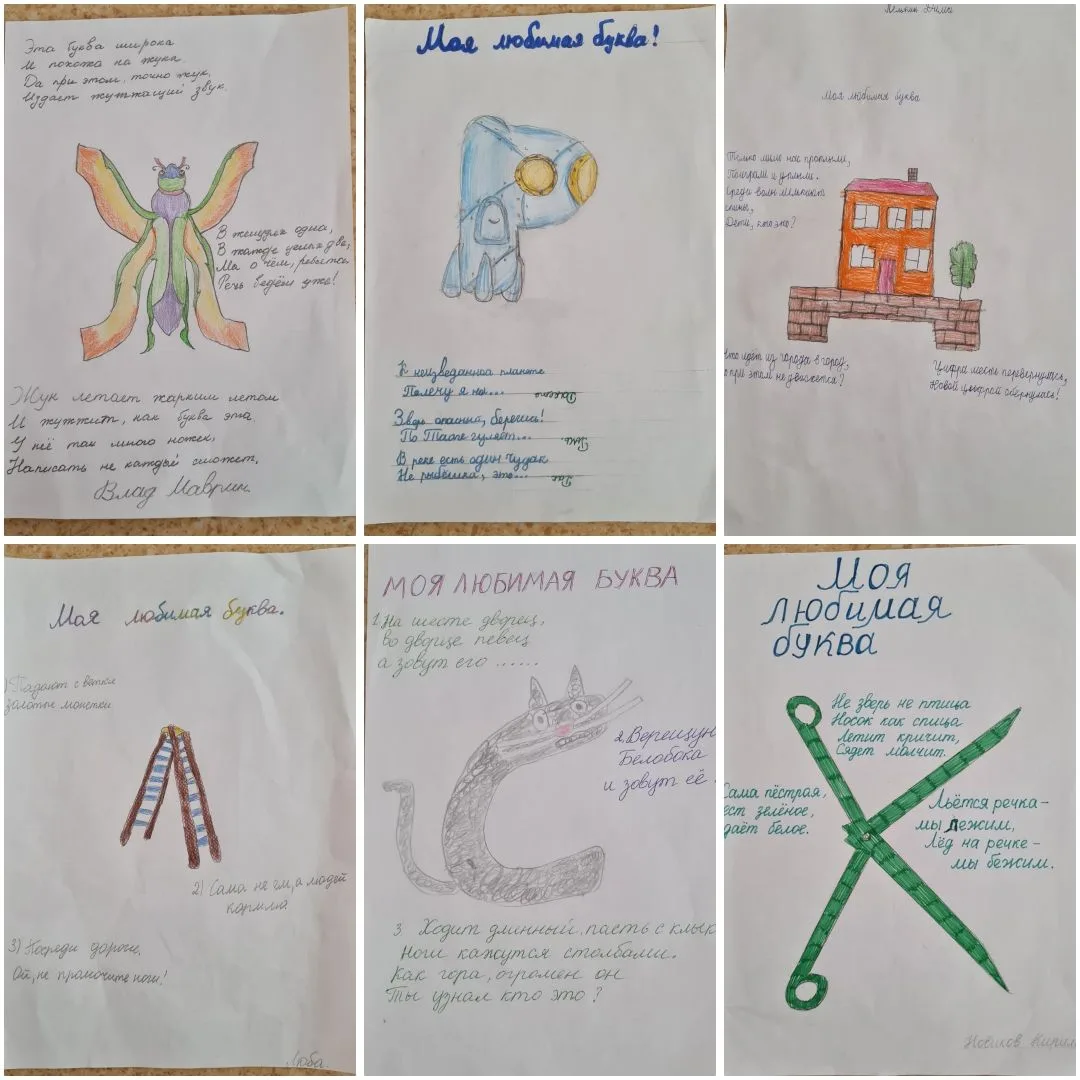 Эта буква широка
И похожа на жука.
Да при этом, точно жук,
Издает жужжащий звук.
В желудке одна,
В жажде целых две,
Мы о чём, ребятки,
Речь ведём уже!
Жук летает жарким летом
И жужжит, как буква эта.
У неё там много ножек,
Написать не каждый сможет.
Влад Маврин.
Моя любимая буква!
К неизведанной планете
Полечу я на... Ракете
Зверь опасный, берегись!
По Тайге гуляет...
В реке есть один чудак
Не рыбёшка, это... Рак
Дима
Моя любимая буква
Только мимо нас проплыли,
Поиграли и уплыли.
Среди волн мелькают
спины,
Дети, кто это?
Что идёт из города в город,
а при этом не движется?
Цифра шесть перевернулась,
Новой цифрой обернулась!
Моя любимая буква.
1) Падают с ветки
золотые монетки
2) Сама не ем, а людей
кормлю.
3) Посреди дороги.
Ой, не промочите ноги!
Люба.
МОЯ ЛЮБИМАЯ БУКВА
1. На шесте дворец,
во дворце певец
а зовут его ......
2. Верещунья
Белобока
и зовут её
3. Ходит длинный, пасть с клык
Ноги кажутся столбами.
Как гора, огромен он
Ты узнал кто это?
Моя
любимая
буква
Не зверь не птица
Носок как спица
Летит кричит,
Сядет молчит.
Сама пёстрая,
ест зелёное,
даёт белое.
Льётся речка-
мы лежим,
Лёд на речке-
мы бежим.
Новиков Кирилл